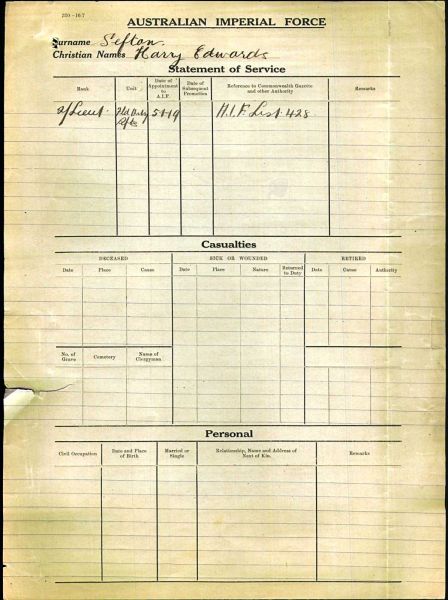 210-16/7
AUSTRALIAN IMPERIAL FORCE
Surname Sefton
Christian Names Harry Edwards
Statement of Service
Rank Unit Date of Appointment to A.I.F. Date of Subsequent Promotion Reference to Commonwealth Gazette and other Authority Remarks
2/Lieut. Fld Arty 5-1-19 A.I.F. List 428
Rfts
Casualties
DECEASED SICK OR WOUNDED RETIRED
Date Place Cause Date Place Nature Returned to Duty Date Cause Authority
No. of Grave Cemetery Name of Clergyman
Personal
Civil Occupation Date and Place of Birth Married or Single Relationship, Name and Address of Next of Kin. Remarks